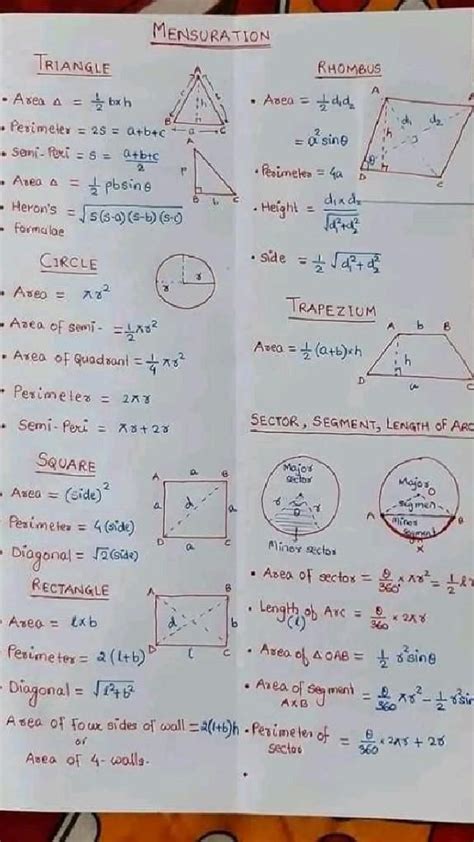 MENSURATION
TRIANGLE
• Area Δ = 1/2 b×h
• Perimeter = 2S = a+b+c
• Semi-Peri = S = (a+b+c)/2
• Area Δ = 1/2 pb sinθ
• Heron's = √(S(S-a)(S-b)(S-c))
• formulae
A
h
B
a
C
A
P
B
b
C
CIRCLE
• Area = πr²
• Area of semi- = 1/2 πr²
• Area of Quadrant = 1/4 πr²
• Perimeter = 2πr
• Semi-Peri = πr + 2r
r
r
SQUARE
• Area = (side)²
Perimeter = 4(side)
• Diagonal = √2(side)
A
a
B
a
d
a
D
a
C
RECTANGLE
• Area = l×b
Perimeter = 2(l+b)
• Diagonal = √(l²+b²)
Area of four sides of wall = 2(l+b)h
or
Area of 4-walls.
A
B
d
b
D
l
C
RHOMBUS
• Area = 1/2 d₁d₂
= a² sinθ
• Perimeter = 4a
• Height = (d₁×d₂)/√(d₁²+d₂²)
• side = 1/2 √(d₁²+d₂²)
A
d₁
d₂
h
θ
D
C
TRAPEZIUM
Area = 1/2 (a+b)×h
A
b
B
h
D
a
SECTOR, SEGMENT, LENGTH of ARC
Major
sector
r
r
Minor sector
Major
segmen
O
A
B
Minor
segment
X
• Area of sector = θ/360 × πr² = 1/2 lr
• Length of Arc = θ/360 × 2πr
(l)
• Area of Δ OAB = 1/2 r² sinθ
• Area of segment = θ/360 πr² - 1/2 r² sin
AXB
• Perimeter of = θ/360 × 2πr + 2r
sector